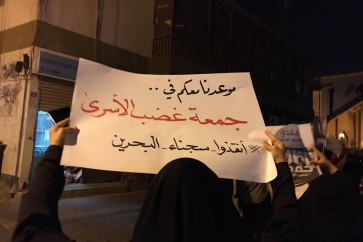 موعدنا معكم في ..
جمعة غضب الأسرى
#أنقذوا_سجناء_البحرين